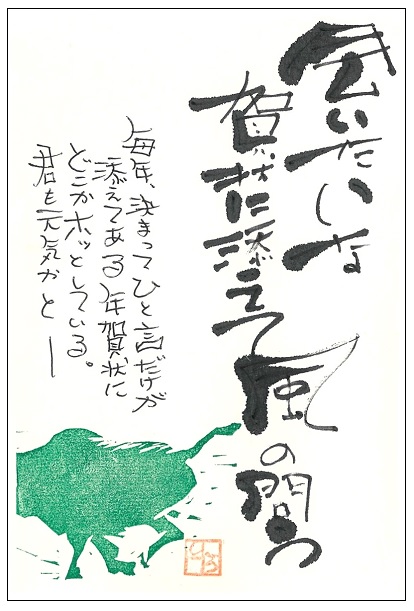 会いたいな
賀状に添えて風の問う
毎年、決まってひと言だけが
添えてある年賀状に
どこかホッとしている。
君も元気かと―